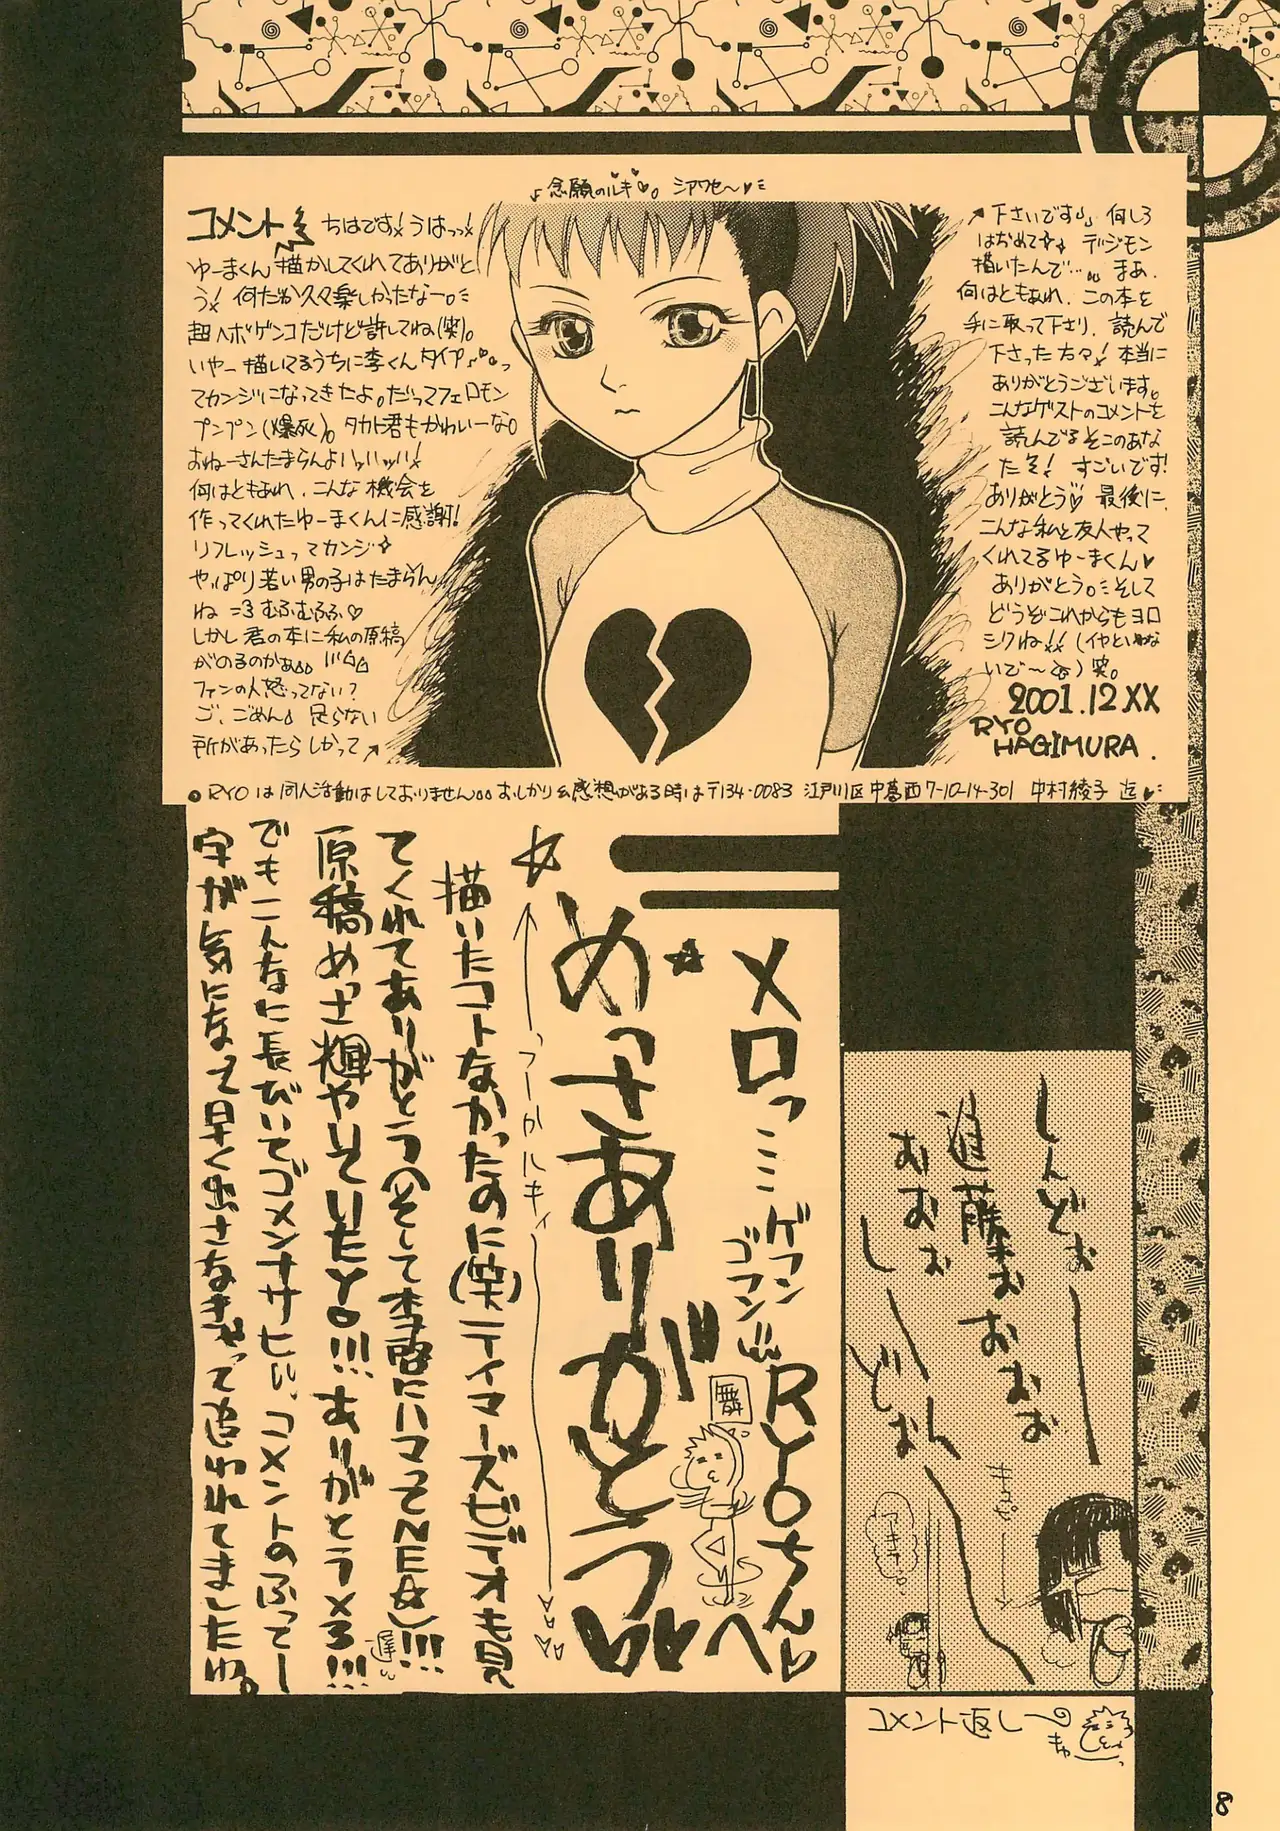 ♪念願のルキ♥。シアワセ〜♥
コメント
ちはです！うはっっ！
ゆーまくん描かしてくれてありがと
う！何だか久々楽しかったなー。
超ヘボゲンコだけど許してね(笑)。
いやー描いてるうちに李くんタイプ♪っ
てカンジになってきたよ。だってフェロモン
プンプン(爆死)。タカト君もかわいーな。
おねーさんたまらんよハッハッハ！
何はともあれ、こんな機会を
作ってくれたゆーまくんに感謝！
リフレッシュってカンジ
やっぱり若い男の子はたまらん
ね むふむふふ♡
しかし君の本に私の原稿
がのるのかぁ
ファンの人怒ってない？
ゴ、ごめん 足らない
所があったらしかって↗
↗下さいです。何しろ
はじめて デジモン
描いたんで…。まあ、
何はともあれ、この本を
手に取って下さり、読んで
下さった方々！本当に
ありがとうございます。
こんなゲストのコメントを
読んでるそこのあな
たそ！すごいです！
ありがとう♡最後に、
こんな私と友人やって
くれてるゆーまくん♥
ありがとう。そして
どうぞこれからもヨロ
シクね！！(イヤといわな
いで〜)笑。
2001.12XX
RYO
HAGIMURA.
●RYOは同人活動はしておりません おしかり&感想がある時は〒134-0083 江戸川区中葛西7-10-14-301 中村綾子 迄♥
しんどぉ──
進藤ぉおおおお
おおぉ
し──どぉ──
メロっ…ゲフンゴフン
RYOちん♡へ
★めっさありがとう♥♥
☆
←─っつーかルキィ─→
描いたコトなかったのに(笑)テイマーズビデオも見
てくれてありがとう(そして李君にハマってNE☆)!!!
原稿めっさ輝やいていたYO!!!ありがとうメろ!!!
でもこんなに長びいてゴメンナサヒ。コメントのふってー
字が気になって早く出さなきゃって追われてましたわ。
コメント返し〜
8